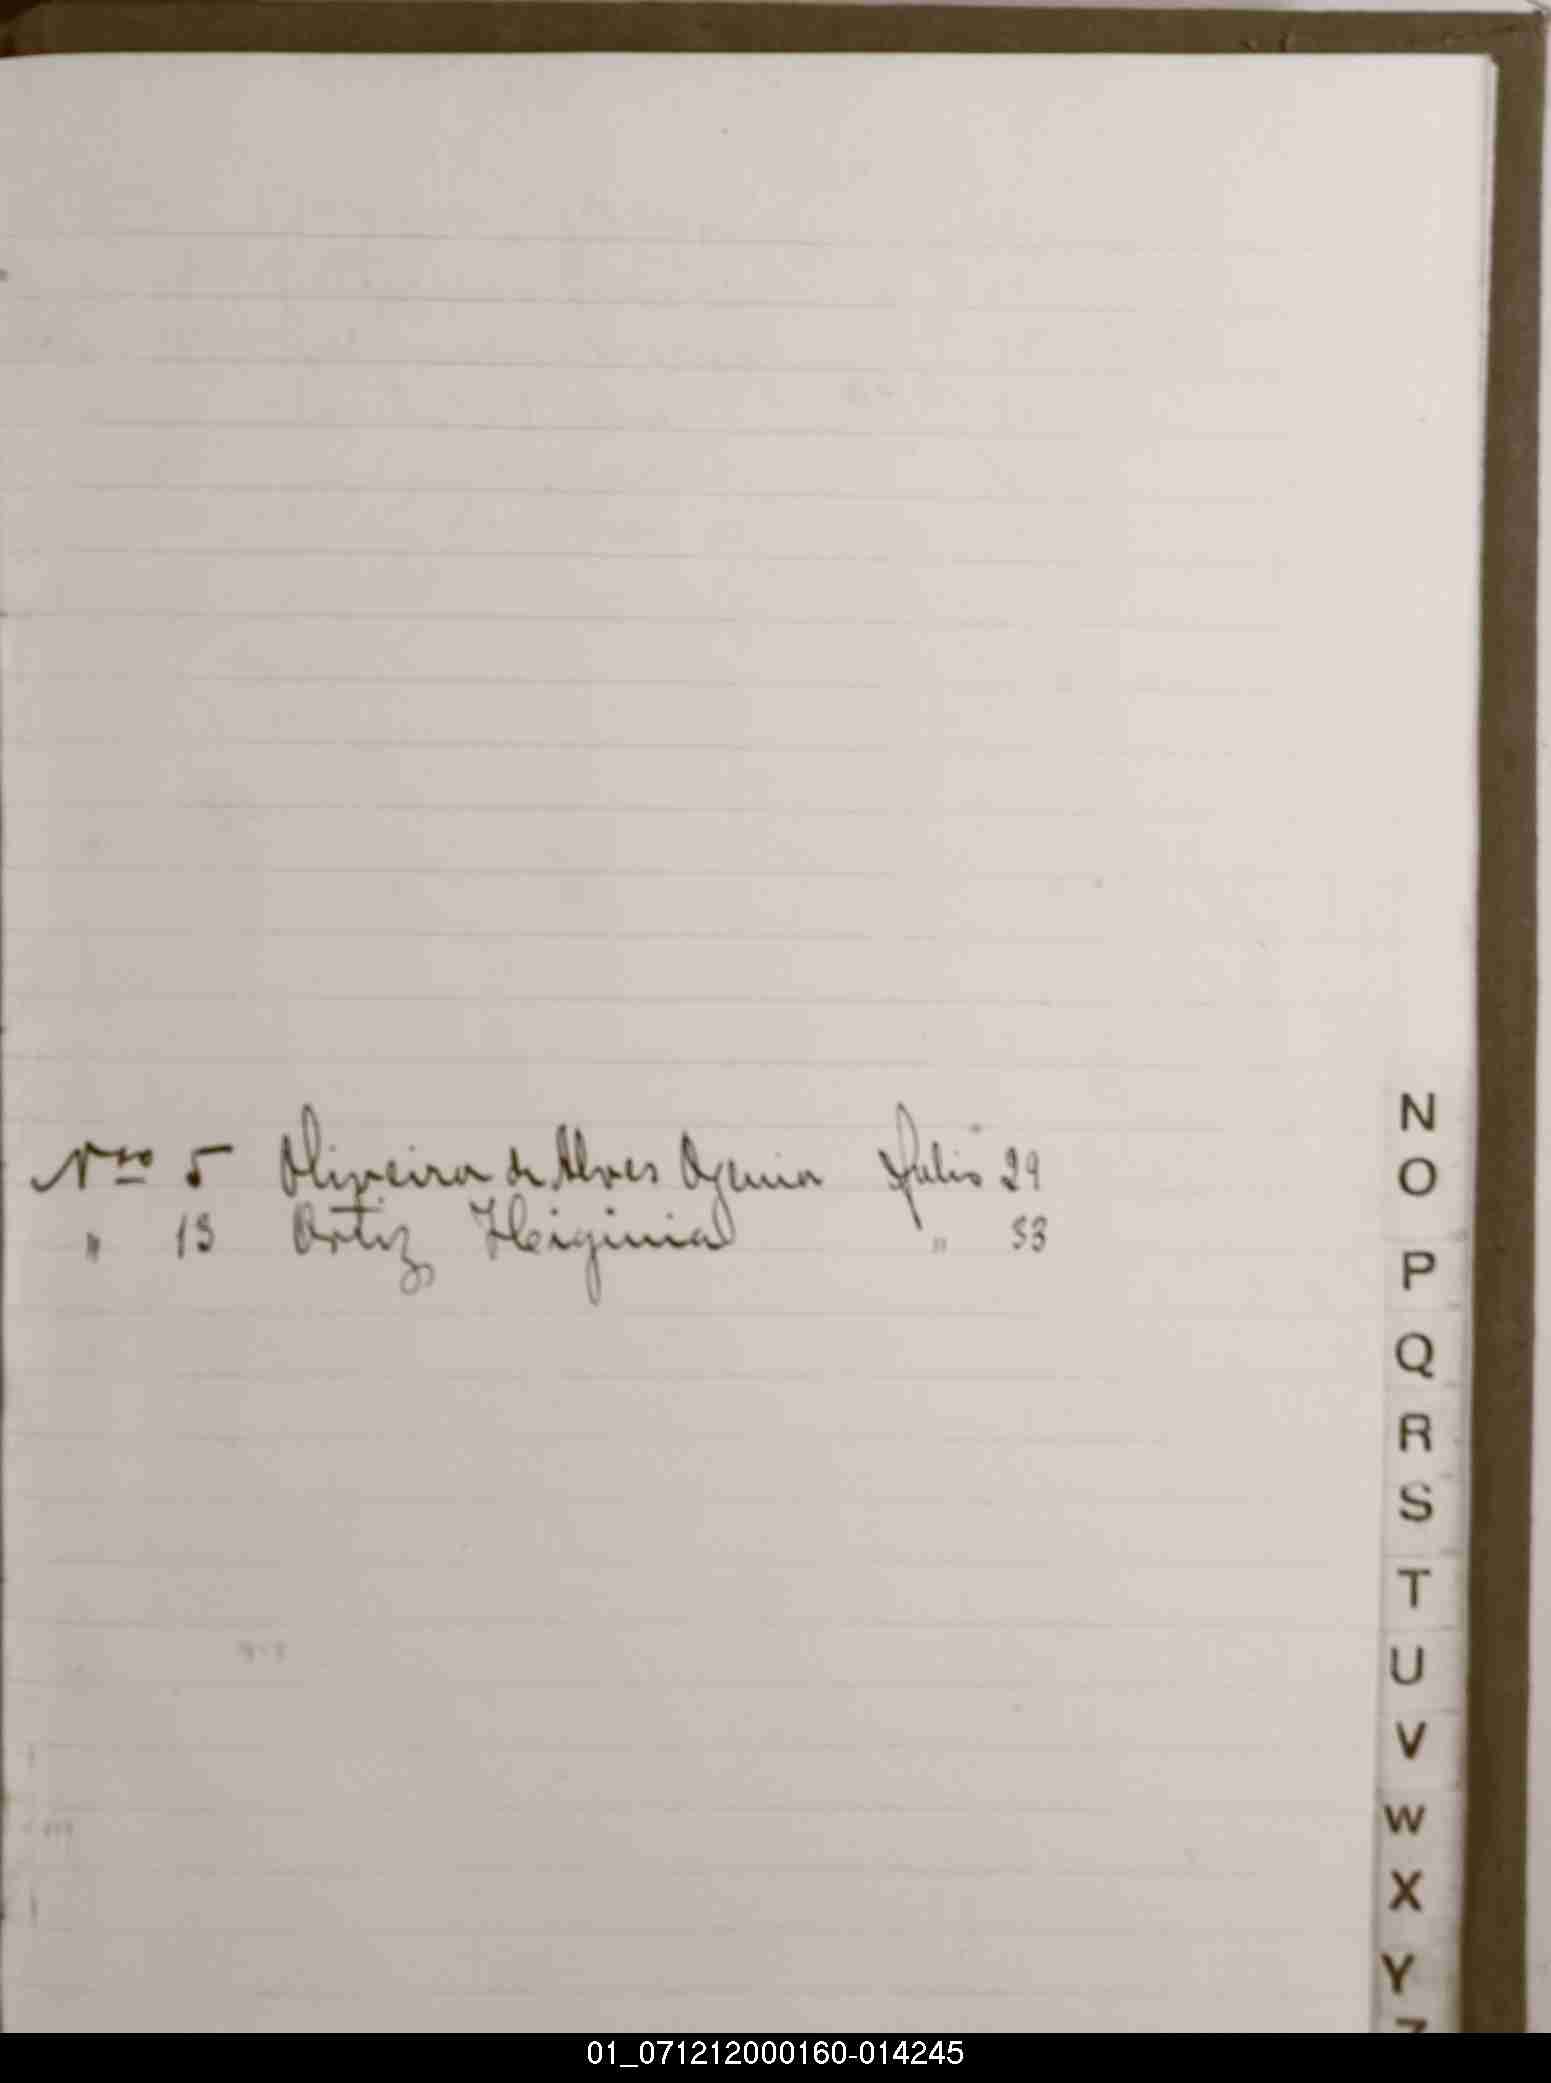 Nro 5 Oliveira de Alves Folio 29
" 13 Ortiz Heiginia " 53
N
O
P
Q
R
S
T
U
V
W
X
Y
Z
01_071212000160-014245